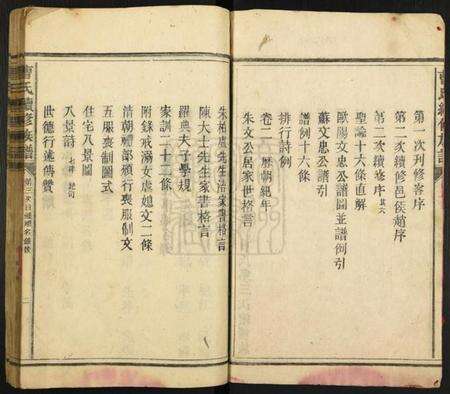 第一次刋修客序
第二次續修邑侯趙序
第二次續修序 其六
聖論十六條直解
歐陽文忠公譜圖並譜例引
蘇文忠公譜引
譜例十六條
排行詩例
卷二 歷朝紀年
朱文公居家世格言
朱柏廬先生治家書格言
陳大士先生家書格言
羅典夫子學規
家訓二十二條
附錄戒溺女虐媳文二條
清朝禮部頒行喪服制文
五服喪制圖式
住宅八景圖
八景詩 七律 起句
世德行述傳贊
曹氏續修族譜